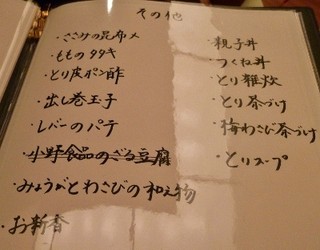 その他
・ささみの昆布〆
・ももの タタキ
・とり皮ポン酢
・出し巻玉子
・レバーのパテ
・小野食品のざる豆腐
・みょうがとわさびの和え物
・お新香
・親子丼
・つくね丼
・とり雑炊
・とり茶づけ
・梅わさび茶づけ
・とりスープ